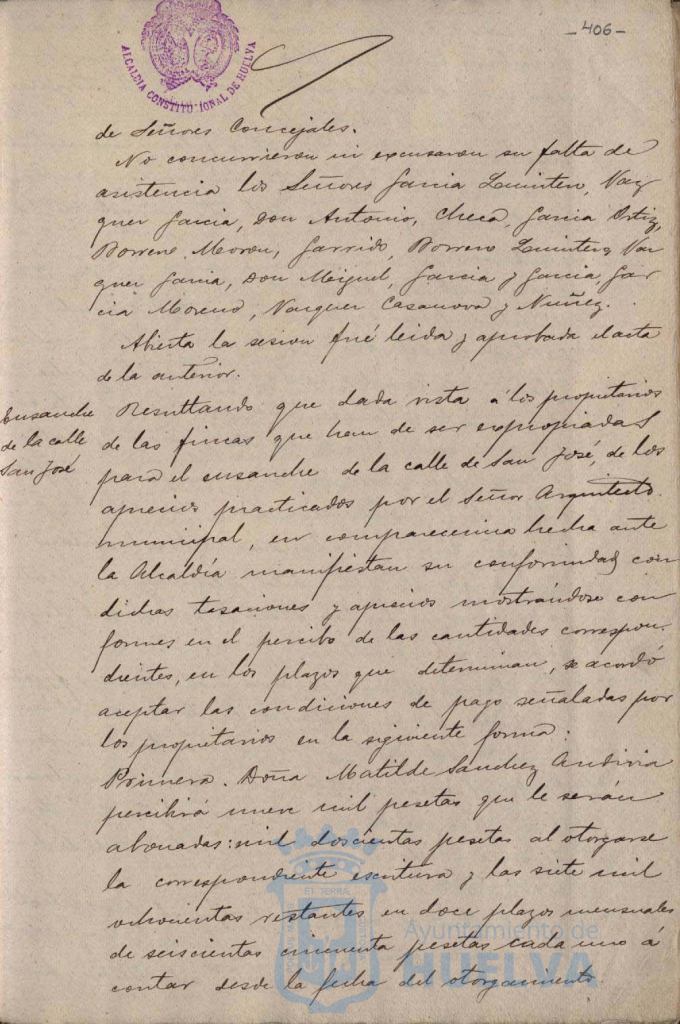 -406-
ALCALDIA CONSTITUCIONAL DE HUELVA
de Señores Concejales.
No concurrieron ni excusaron su falta de
asistencia los Señores Garcia Quintero, Vaz
quez Garcia, Don Antonio, Checa, Garcia Ortiz,
Borrero Moron, Garrido, Borrero Quintero, Vaz
quez Garcia, Don Miguel, Garcia y Garcia, Gar
cia Moreno, Vazquez Casanova y Nuñez.
Abierta la sesion fué leida y aprobada el acta
de la anterior.
Ensanche
de la calle
San José
Resultando que dada vista á los propietarios
de las fincas que han de ser expropiadas
para el ensanche de la calle de San José, de los
aprecios practicados por el Señor Arquitecto
municipal, en comparecencia hecha ante
la Alcaldía manifiestan su conformidad con
dichas tasaciones y aprecios mostrándose con
formes en el percibo de las cantidades correspon-
dientes, en los plazos que determinan, se acordó
aceptar las condiciones de pago señaladas por
los propietarios en la siguiente forma:
Primera. Doña Matilde Sanchez
percibirá nueve mil pesetas que le serán
abonadas: mil doscientas pesetas al otorgarse
la correspondiente escritura y las siete mil
ochocientas restantes en doce plazos mensuales
de seiscientas cincuenta pesetas cada uno á
contar desde la fecha del otorgamiento.
Ayuntamiento de
HUELVA